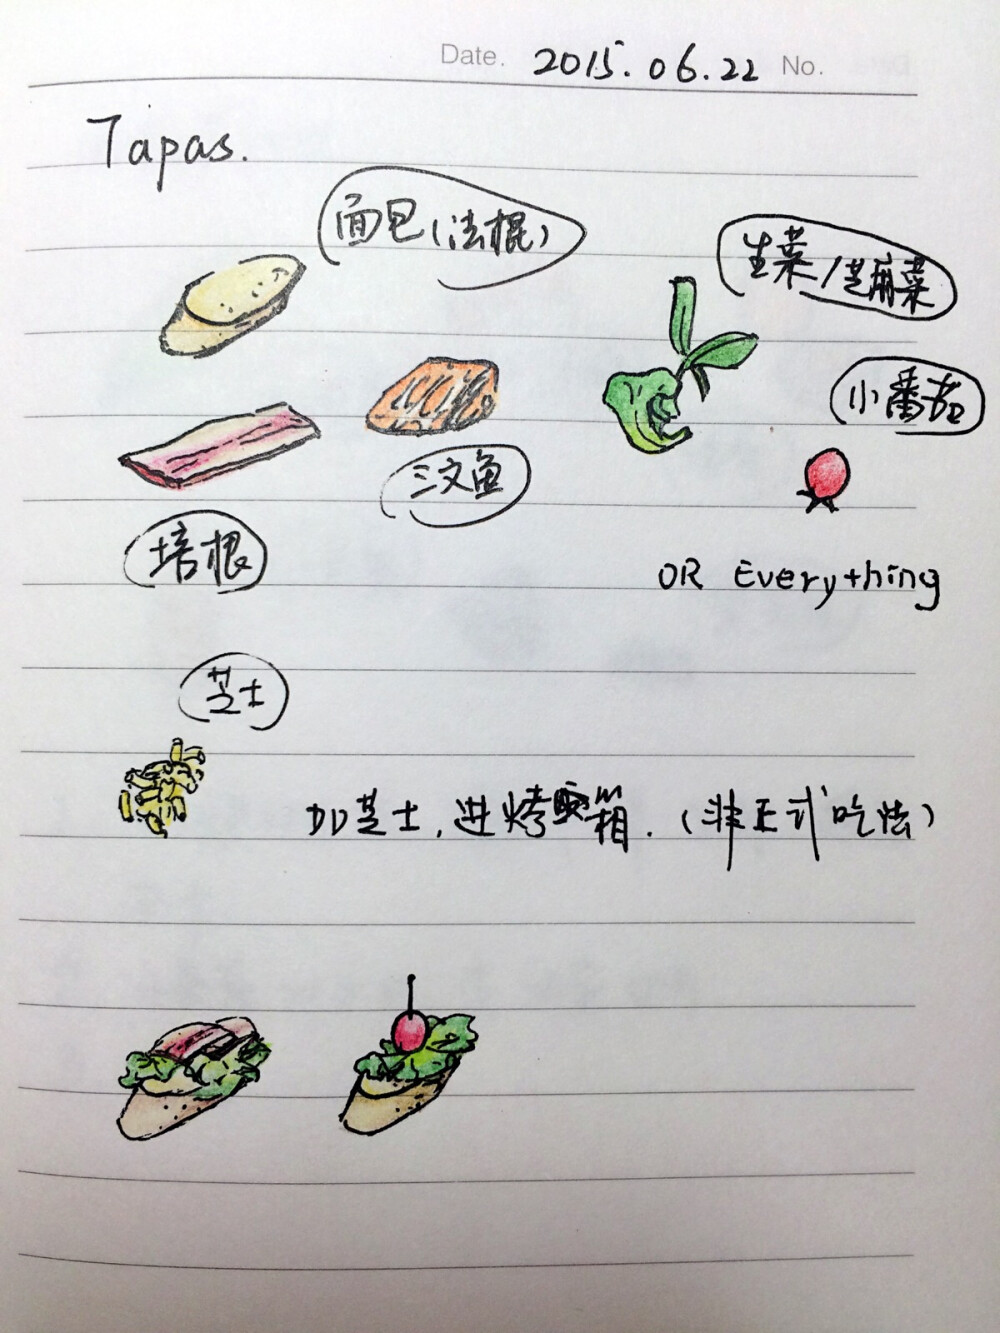 Date. 2015.06.22 No.
Tapas.
面包(法棍)
生菜/芝麻菜
小番茄
三文鱼
培根
OR Everything
芝士
加芝士,进烤箱.(非正式吃法)